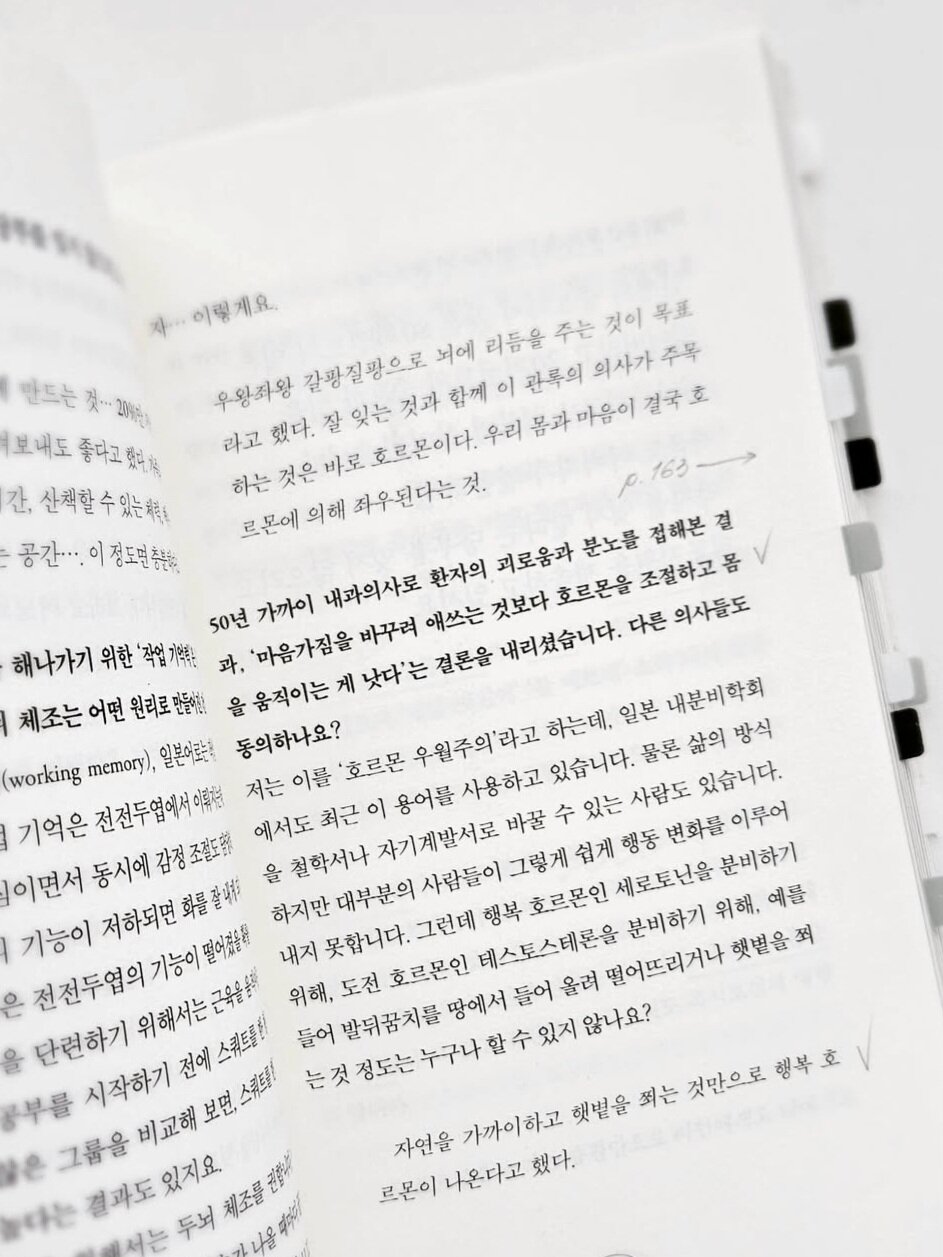 만드는 것… 20%
보내도 좋다고 했다.
산책할 수 있는 체력,
공간…. 이 정도면 충분
해나가기 위한 ‘작업 기억력’
체조는 어떤 원리로
(working memory), 일본어로는
기억은 전전두엽에서
이면서 동시에 감정 조절도
기능이 저하되면 화를 잘 내게
은 전전두엽의 기능이 떨어졌을
을 단련하기 위해서는 근육을
공부를 시작하기 전에 스쿼트를 한
않은 그룹을 비교해 보면, 스쿼트를
높다는 결과도 있지요.
위해서는 두뇌 체조를 권합니다
나올 때마다
자… 이렇게요.
우왕좌왕 갈팡질팡으로 뇌에 리듬을 주는 것이 목표
라고 했다. 잘 잊는 것과 함께 이 관록의 의사가 주목
하는 것은 바로 호르몬이다. 우리 몸과 마음이 결국 호
르몬에 의해 좌우된다는 것.
p.163 →
50년 가까이 내과의사로 환자의 괴로움과 분노를 접해본 결
과, ‘마음가짐을 바꾸려 애쓰는 것보다 호르몬을 조절하고 몸
을 움직이는 게 낫다’는 결론을 내리셨습니다. 다른 의사들도
동의하나요?
저는 이를 ‘호르몬 우월주의’라고 하는데, 일본 내분비학회
에서도 최근 이 용어를 사용하고 있습니다. 물론 삶의 방식
을 철학서나 자기계발서로 바꿀 수 있는 사람도 있습니다.
하지만 대부분의 사람들이 그렇게 쉽게 행동 변화를 이루어
내지 못합니다. 그런데 행복 호르몬인 세로토닌을 분비하기
위해, 도전 호르몬인 테스토스테론을 분비하기 위해, 예를
들어 발뒤꿈치를 땅에서 들어 올려 떨어뜨리거나 햇볕을 쬐
는 것 정도는 누구나 할 수 있지 않나요?
자연을 가까이하고 햇볕을 쬐는 것만으로 행복 호
르몬이 나온다고 했다.